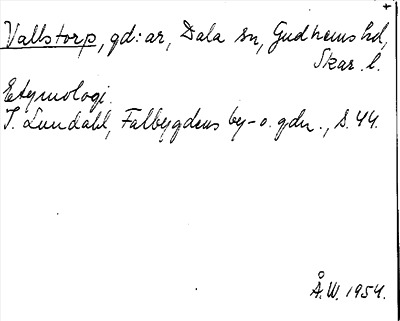 Vallstorp, gd:ar, Dala sn, Gudhems hd,
Skar. l.
Etymologi.
I. Lundahl, Falbygdens by- o. gdn., s. 44.
Å.W. 1954.